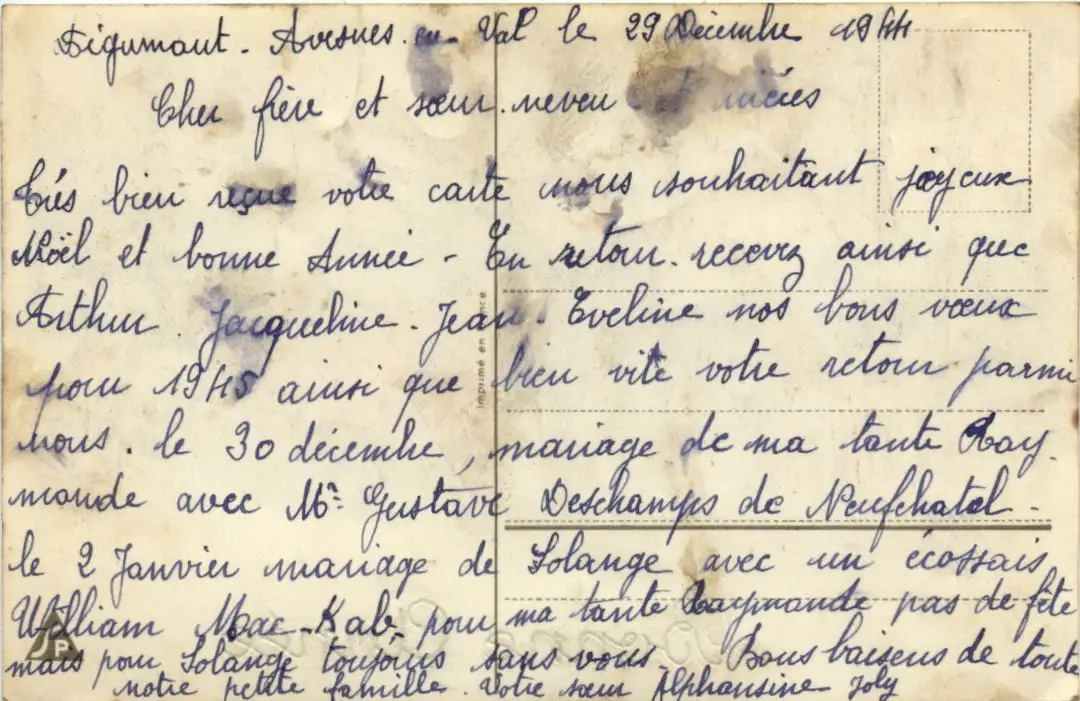 Digumaut - Avesnes-en-Val le 29 Décembre 1944
Cher frère et sœur. neveu et nièces
Très bien reçue votre carte nous souhaitant joyeux
Noël et bonne Année - En retour. recevez ainsi que
Arthur. Jacqueline. Jean. Eveline nos bons vœux
pour 1945 ainsi que bien vite votre retour parmi
nous. le 30 décembre, mariage de ma tante Ray-
monde avec Mr Gustave Deschamps de Neufchatel -
le 2 Janvier mariage de Solange avec un écossais
William Mac-Kab, pour ma tante Raymonde pas de fête
mais pour Solange toujours sans vous. Bons baisers de toute
notre petite famille. Votre sœur Alphonsine Joly
Imprimé en France